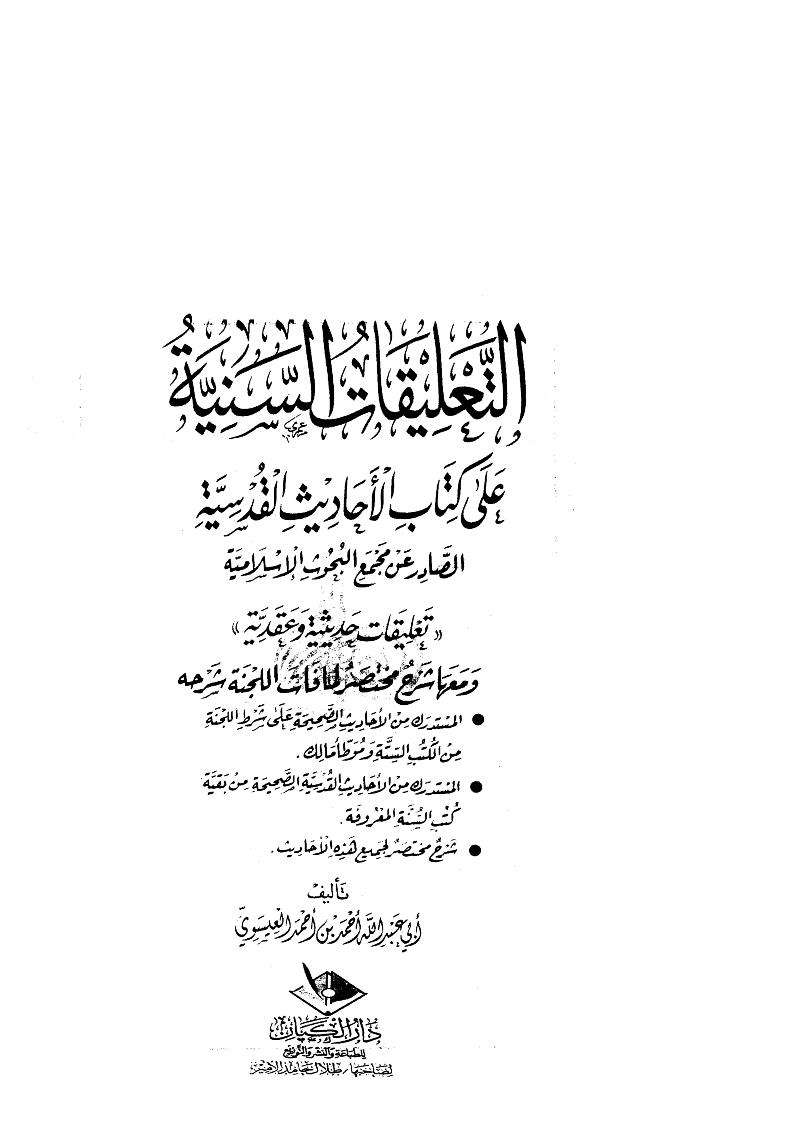 التَّعْلِيْقَاتُ السَّنِيَّةُ
عَلَى كِتَابِ الْأَحَادِيْثِ الْقُدْسِيَّةِ
الصَّادِر عَنْ مَجْمَعِ البُحُوثِ الإِسْلَامِيَّة
« تَعْلِيقَات حَدِيثِيَّة وَعَقَدِيَّة »
وَمَعَهَا شَرْحُ مُخْتَصَرُ لِمَافَاتَ اللجْنَة شَرْحه
● المُسْتَدرَك مِنَ الأَحَادِيثِ الصَّحِيحَة عَلَى شَرْطِ اللجْنَة
مِنَ الكُتُب السِّتَّة وَمُوَطَّأ مَالِك .
● المُسْتَدرَك مِنَ الأَحَادِيثِ القُدسِيَّة الصَّحِيحَة مِنْ بَقِيَّة
كُتْبِ السُّنَّة المَعْرُوفَة .
● شَرْحٌ مُخْتَصَرٌ لِجَمِيعِ هَذِهِ الأَحَادِيث .
تَأليفُ
أَبِي عَبْدِ اللَّه أَحْمَد بْن أَحْمَد العِيسَوِيّ
دَارُ الكَيَانِ
للطباعة والنشر والتوزيع
لصاحبها / طلال حامد الامير